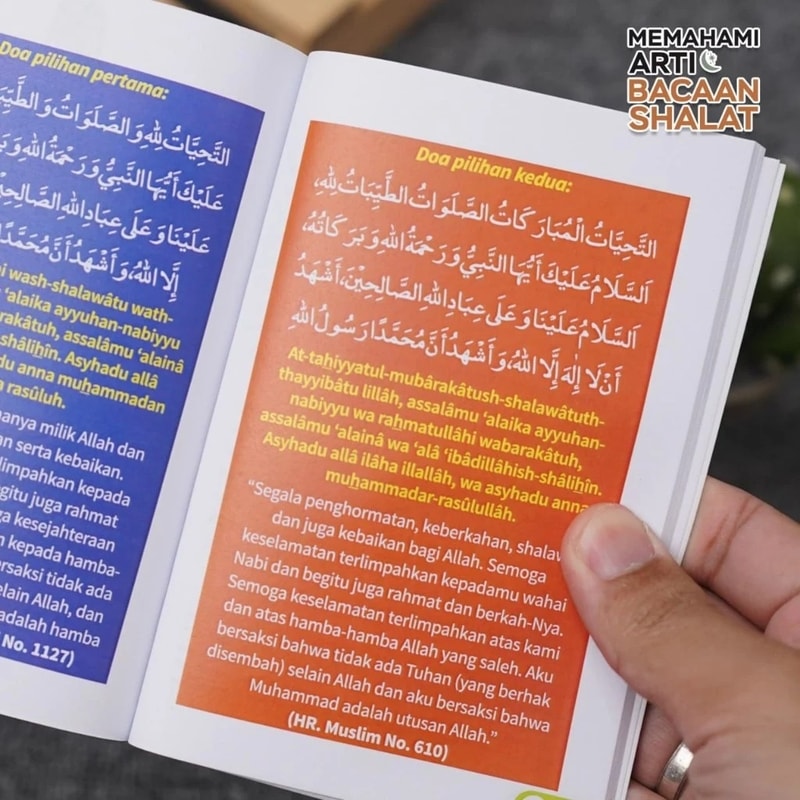 MEMAHAMI
ARTI
BACAAN
SHALAT
Doa pilihan pertama:
التَّحِيَّاتُ لِلّٰهِ وَالصَّلَوَاتُ وَالطَّيِّبَا
عَلَيْكَ أَيُّهَا النَّبِيُّ وَرَحْمَةُ اللهِ وَبَرَ
عَلَيْنَا وَعَلَى عِبَادِ اللهِ الصَّالِحِيْنَ
إِلَّا اللهُ، وَأَشْهَدُ أَنَّ مُحَمَّدًا
wash-shalawâtu wath-
'alaika ayyuhan-nabiyyu
arakâtuh, assalâmu 'alainâ
shâliḫîn. Asyhadu allâ
du anna muḫammadan
rasûluh.
hanya milik Allah dan
an serta kebaikan.
limpahkan kepada
egitu juga rahmat
ga kesejahteraan
n kepada hamba-
ersaksi tidak ada
elain Allah, dan
adalah hamba
No. 1127)
Doa pilihan kedua:
التَّحِيَّاتُ الْمُبَارَكَاتُ الصَّلَوَاتُ الطَّيِّبَاتُ لِلّٰهِ،
اَلسَّلَامُ عَلَيْكَ أَيُّهَا النَّبِيُّ وَرَحْمَةُ اللهِ وَبَرَكَاتُهُ،
اَلسَّلَامُ عَلَيْنَا وَعَلَى عِبَادِ اللهِ الصَّالِحِيْنَ، أَشْهَدُ
أَنْ لَا إِلٰهَ إِلَّا اللهُ، وَأَشْهَدُ أَنَّ مُحَمَّدًا رَسُولُ اللهِ
At-taḫiyyatul-mubârakâtush-shalawâtuth-
thayyibâtu lillâh, assalâmu 'alaika ayyuhan-
nabiyyu wa raḫmatullâhi wabarakâtuh,
assalâmu 'alainâ wa 'alâ 'ibâdillâhish-shâliḫîn.
Asyhadu allâ ilâha illallâh, wa asyhadu anna
muḫammadar-rasûlullâh.
"Segala penghormatan, keberkahan, shalaw
dan juga kebaikan bagi Allah. Semoga
keselamatan terlimpahkan kepadamu wahai
Nabi dan begitu juga rahmat dan berkah-Nya.
Semoga keselamatan terlimpahkan atas kami
dan atas hamba-hamba Allah yang saleh. Aku
bersaksi bahwa tidak ada Tuhan (yang berhak
disembah) selain Allah dan aku bersaksi bahwa
Muhammad adalah utusan Allah."
(HR. Muslim No. 610)